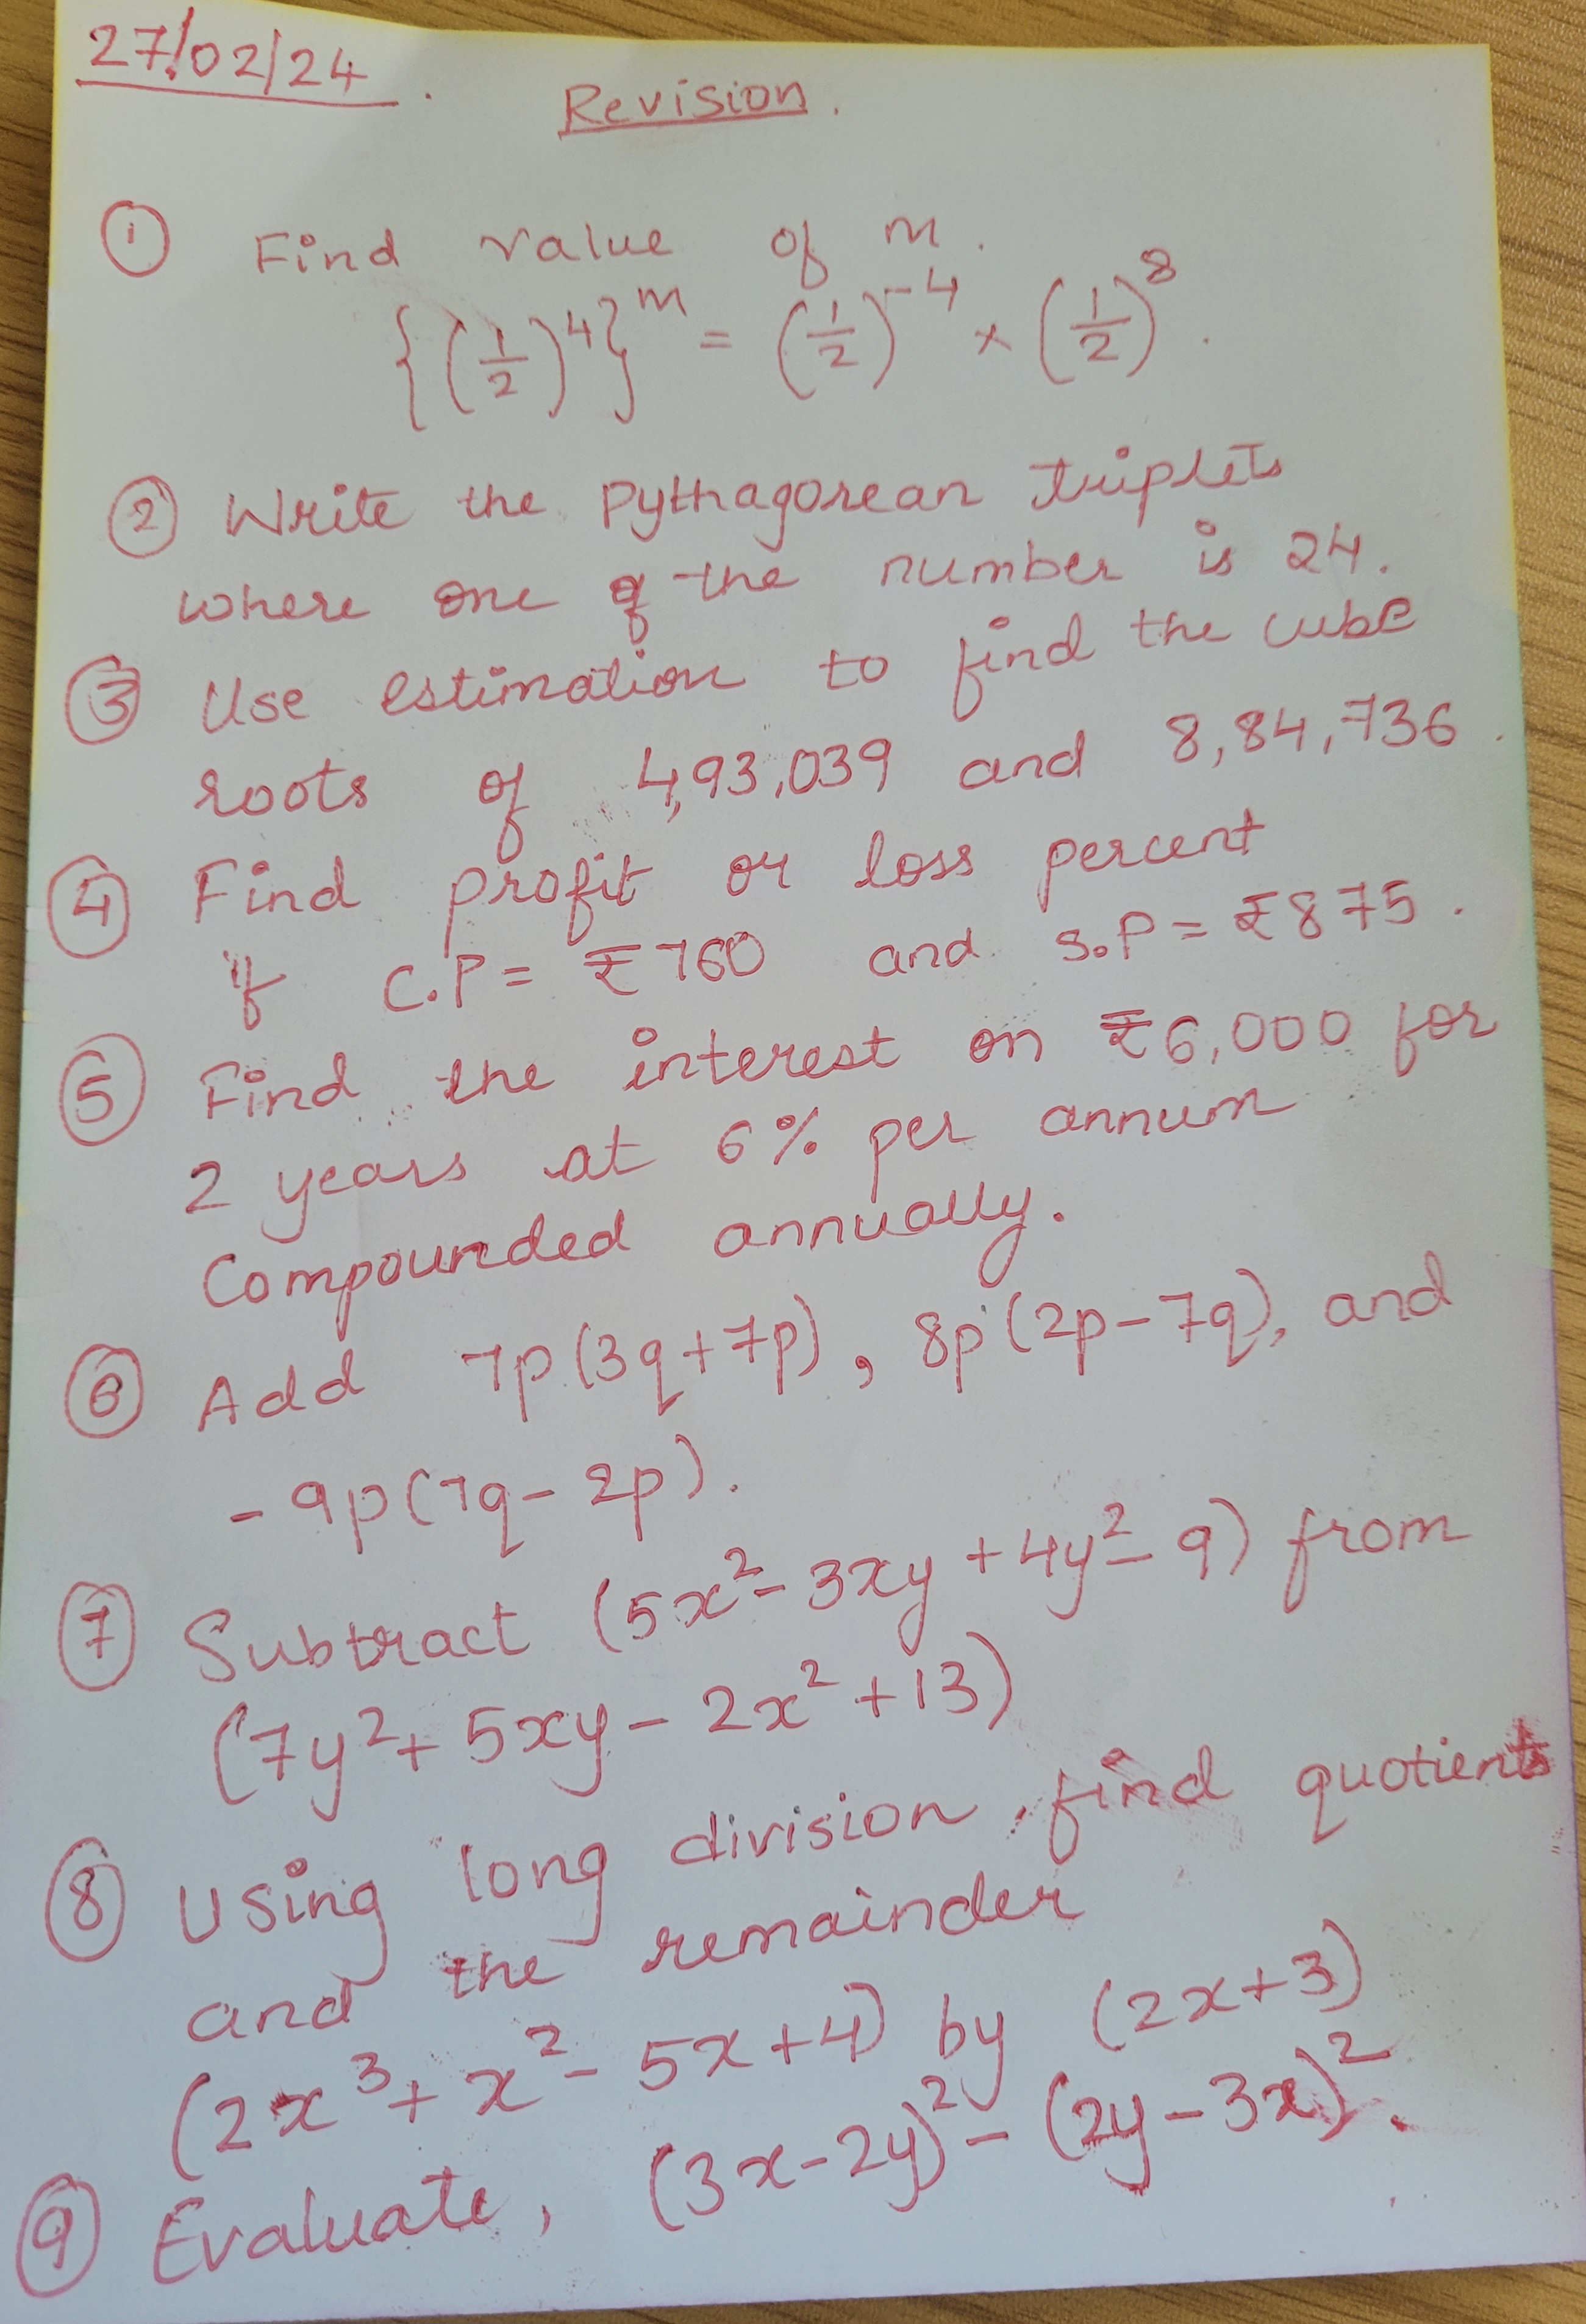 27/02/24.
Revision.
① Find value of m.
{(1/2)^4}^m = (1/2)^-4 × (1/2)^8.
② Write the Pythagorean triplets
where one of the number is 24.
③ Use estimation to find the cube
roots of 4,93,039 and 8,84,736.
④ Find profit or loss percent
if C.P = ₹760 and S.P = ₹875.
⑤ Find the interest on ₹6,000 for
2 years at 6% per annum
Compounded annually.
⑥ Add 7p(3q+7p), 8p(2p-7q), and
-9p(7q-2p).
⑦ Subtract (5x²-3xy+4y²-9) from
(7y²+5xy-2x²+13)
⑧ Using long division, find quotients
and the remainder
(2x³+x²-5x+4) by (2x+3)
⑨ Evaluate, (3x-2y)²-(2y-3x)².